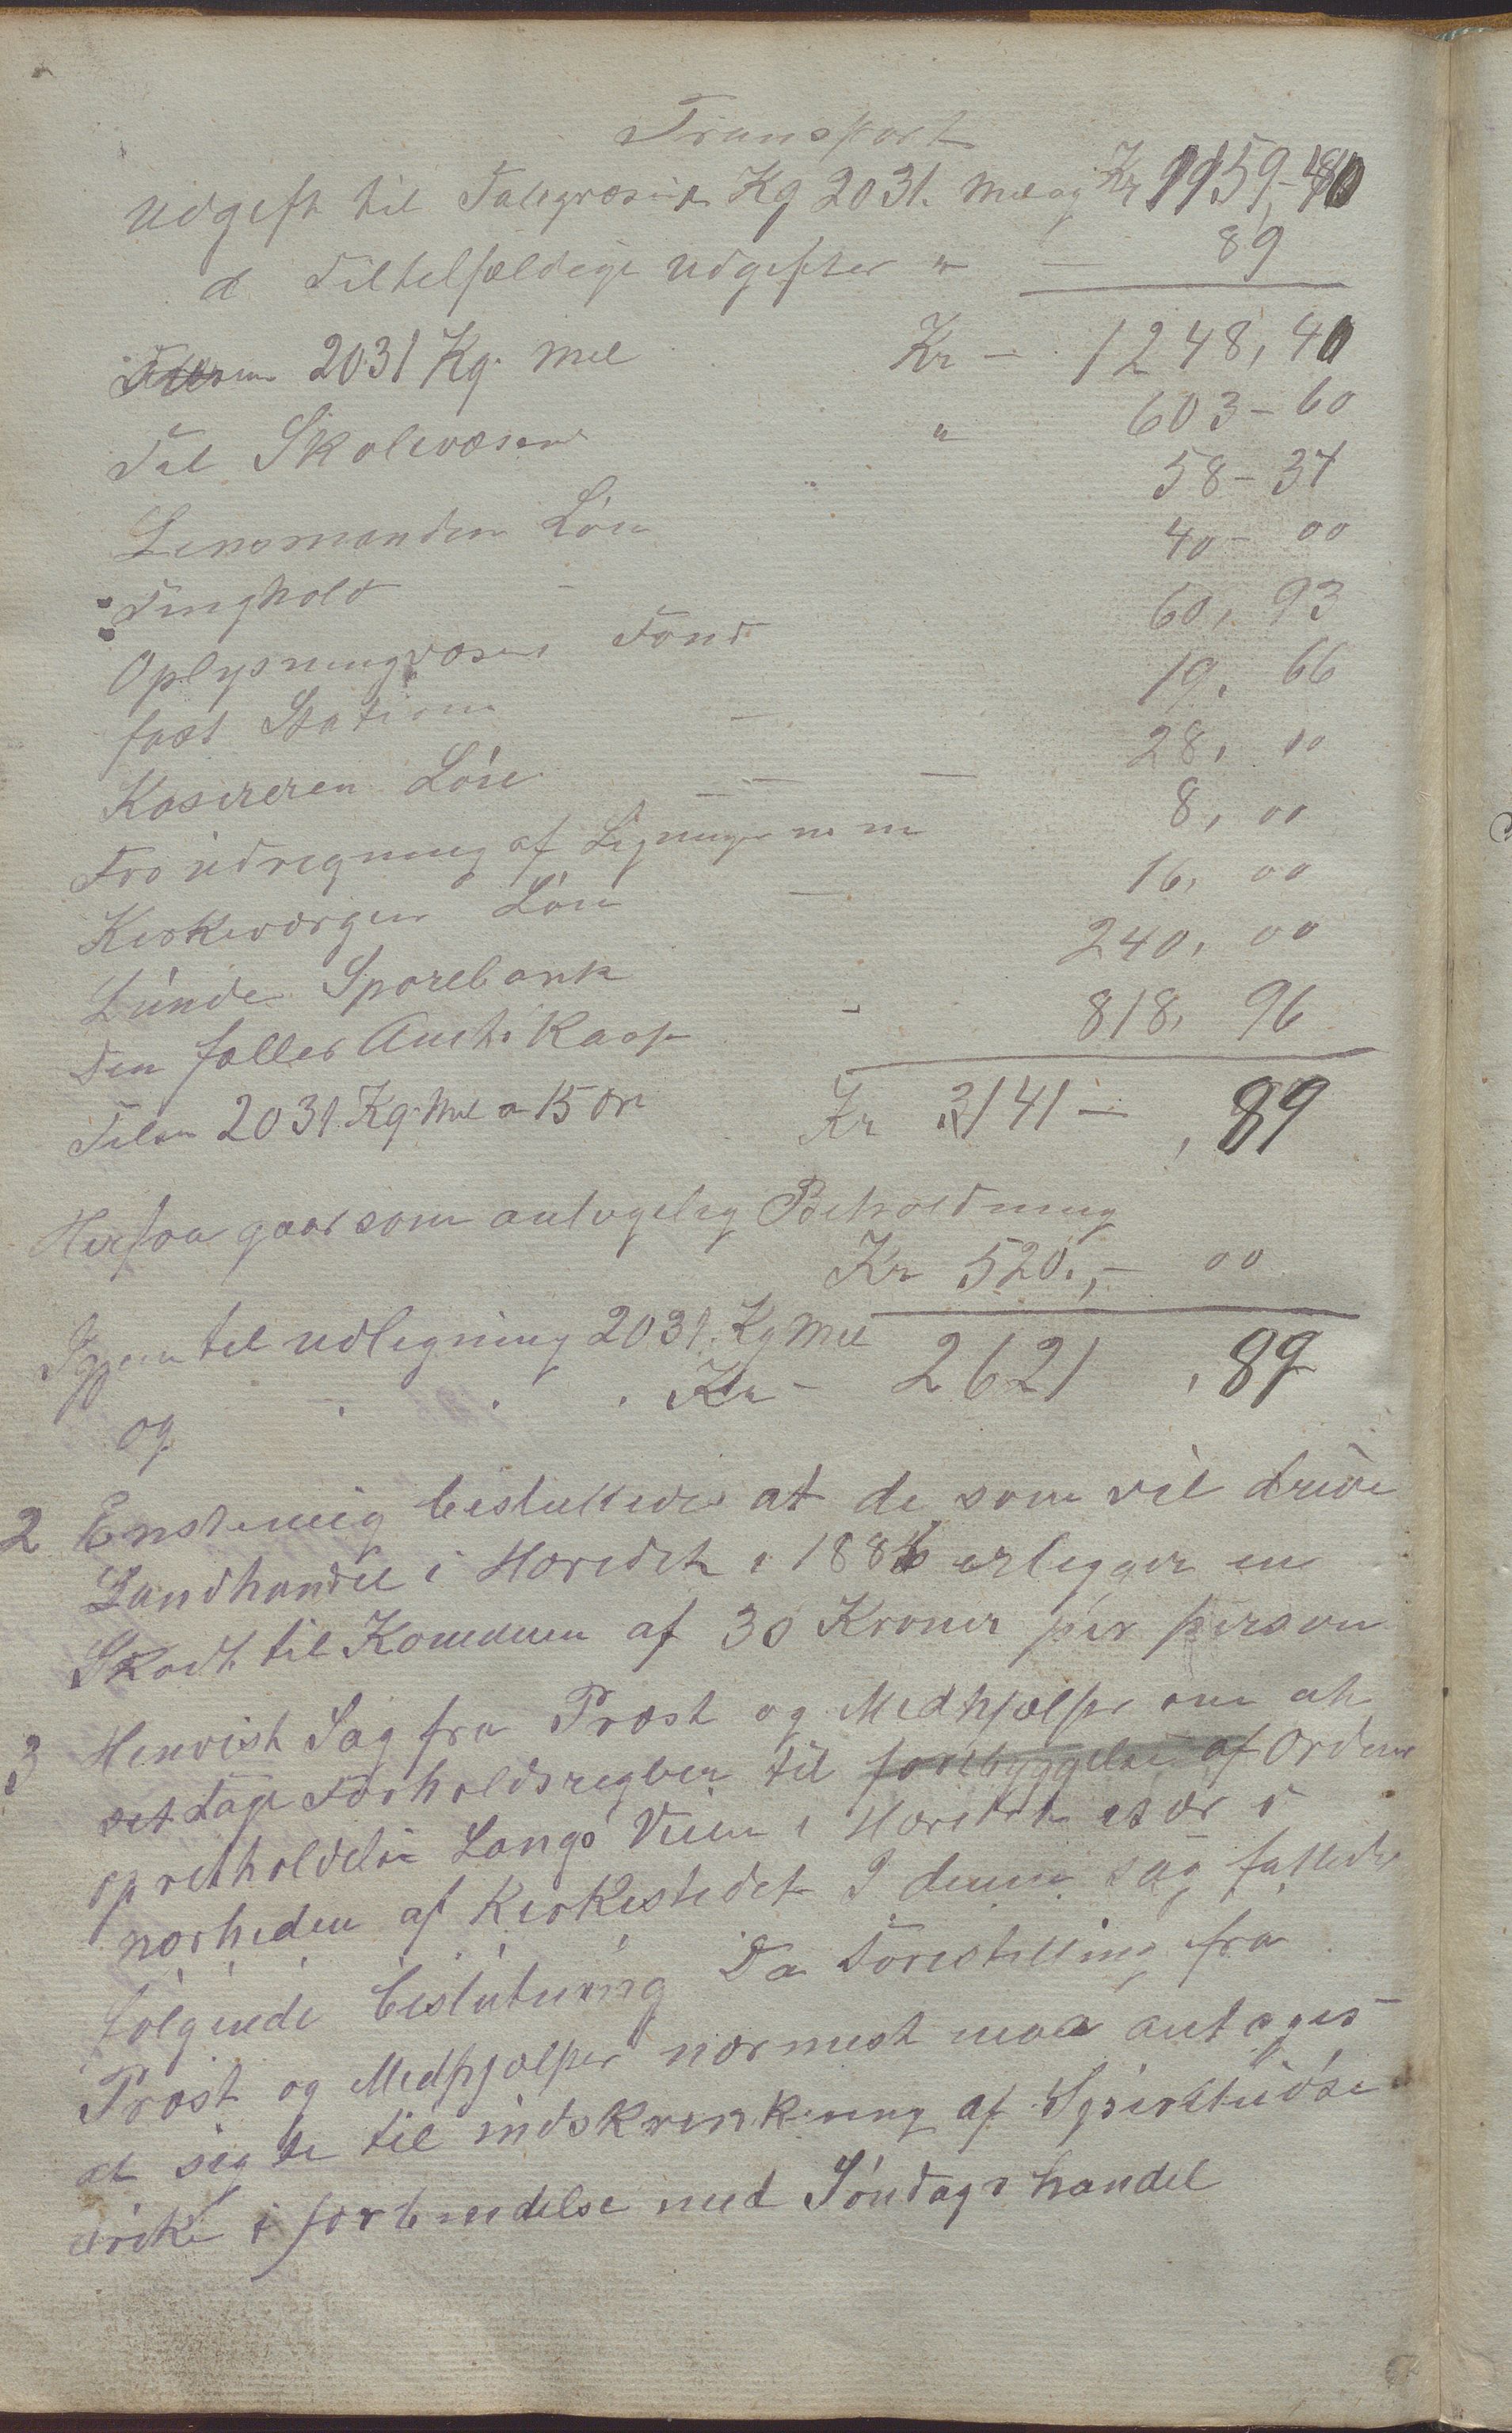 Transport
Udgift til Fatigvæsnet Kg 2031. Mel og Kr 1159,-40
a Tiltelfældige Udgifter " — 89
Tilsam 2031 Kg. Mel Kr — 1248,40
Til Skolevæsenet " 603-60
Lensmandens Lön 58-34
Tinghold 40-00
Oplysningsvæsens Fond 60,93
fast Station 19.66
Kasereren Löne — 28,00
For udregning af Ligninger m m 8,00
Kirkeværgens Lön 16,00
Lunde Sparebank 240,00
Den fælles Amts Kasse 818,96
Tilsm 2031 Kg. Mel a 15 Öre Kr 3141 — ,89
Herfra gaar som antagelig Beholdning
Kr 520.,- 00
Igjen til Udligning 2031. Kg Mel
og Kr - 2621 ,89
2 Enstemig besluttedes at de som vil drive
Landhandel i Heredet i 1886 erlegger en
Skadt til Kommunen af 30 Kroner per person
3 Henvist Sag fra Præst og Medhjælper om at
vedtage Forholdsregler til forebyggelse af Ordens
opretholdelse Langs Veien i Heredet især i
nærheden af Kirkestedet I denne sag fattedes
følgende beslutning Da Forestilling fra
Præst og Medhjælper nærmest maa antages
at sigte til indskrenkning af Spirituöse
drikke i forbindelse med Söndags handel